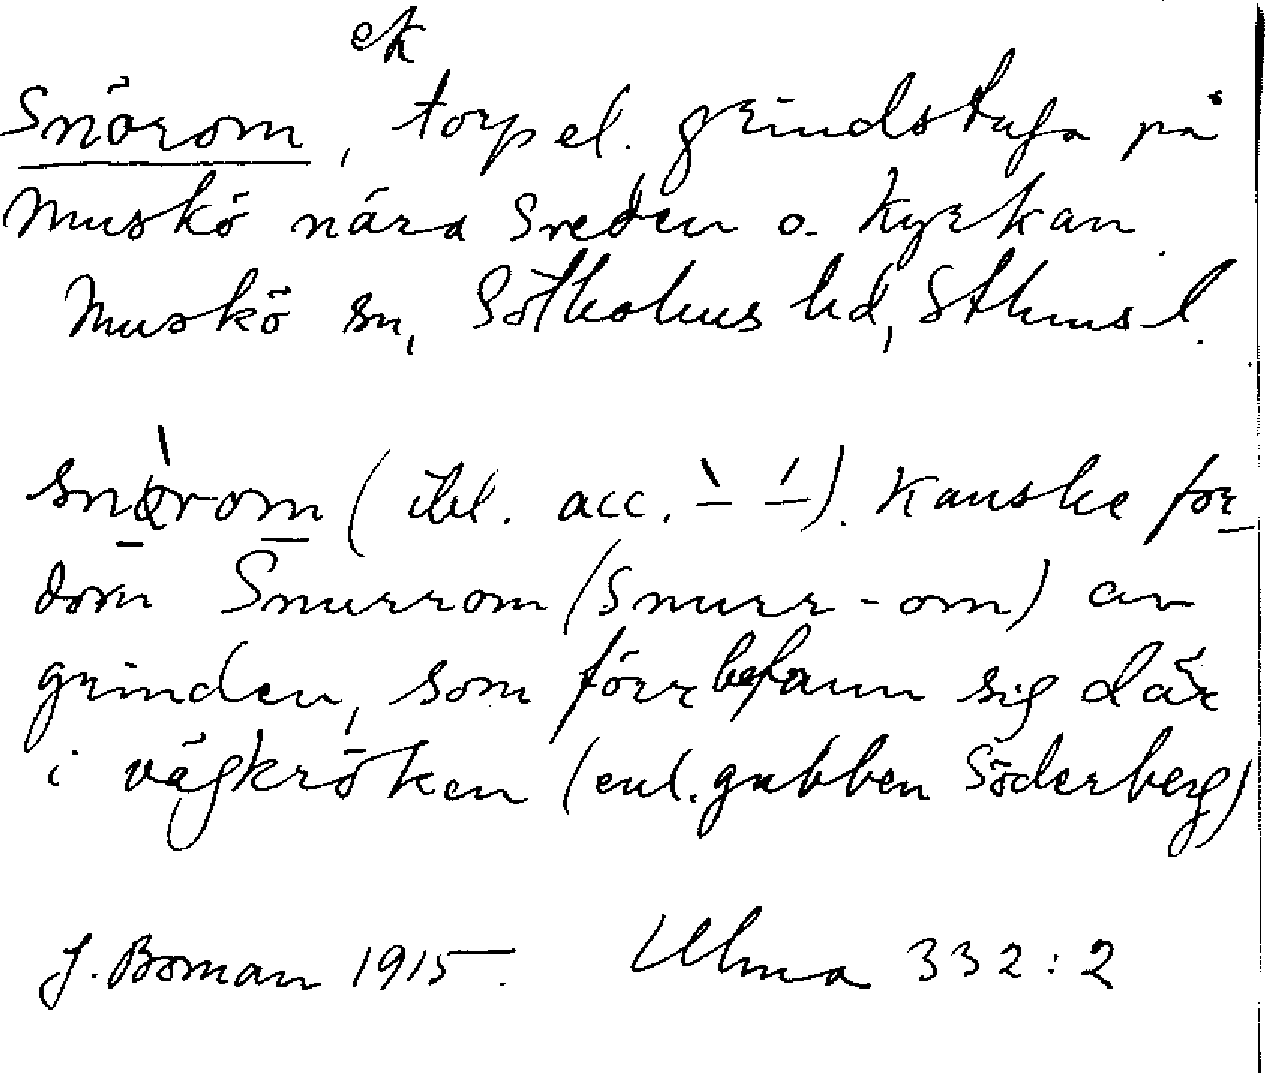 ek
Snörom, torp el. grindstuga på
Muskö nära Sreden o. Kyrkan
Muskö sn, Sotholms hd, Sthms l.
snörom (ibl. acc. ). Kanske for
dom Snurrom (Snurr-om) av
grinden, som förr befann sig där
i vägkröken (enl. gubben Söderberg)
J. Boman 1915. Ulma 332:2